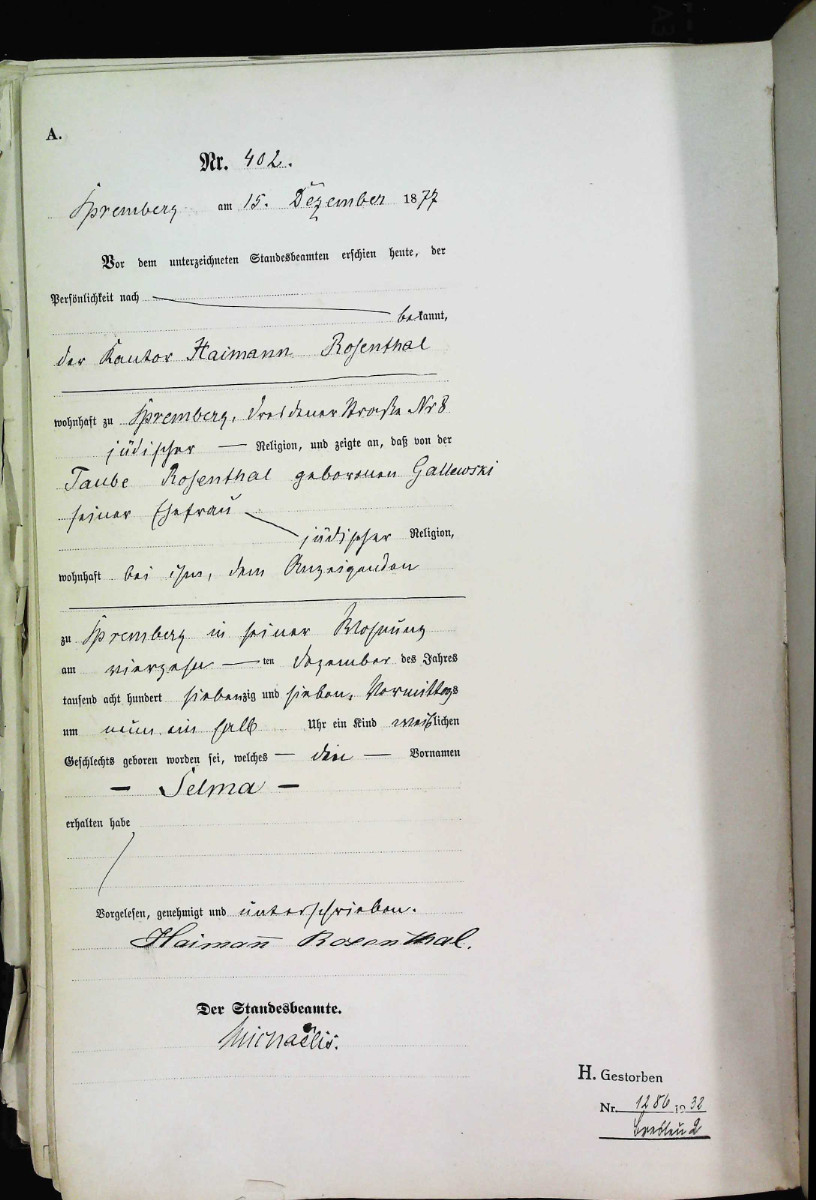 A.
Nr. 402.
Spremberg am 15. Dezember 1877
Vor dem unterzeichneten Standesbeamten erschien heute, der
Persönlichkeit nach
bekannt,
der Kantor Haimann Rosenthal
wohnhaft zu Spremberg, Dresdener Straße Nr 8
jüdischer — Religion, und zeigte an, daß von der
Taube Rosenthal geborenen Gallewski
seiner Ehefrau
jüdischer Religion,
wohnhaft bei ihm, dem Anzeigenden
zu Spremberg in seiner Wohnung
am vierzehn — ten Dezember des Jahres
tausend acht hundert siebenzig und sieben, Vormittags
um neun ein halb Uhr ein Kind weiblichen
Geschlechts geboren worden sei, welches — den — Vornamen
— Selma —
erhalten habe
Vorgelesen, genehmigt und unterschrieben.
Haiman̅ Rosenthal.
Der Standesbeamte.
Michaëlis.
H. Gestorben
Nr. 1286 1932
Breslau 2